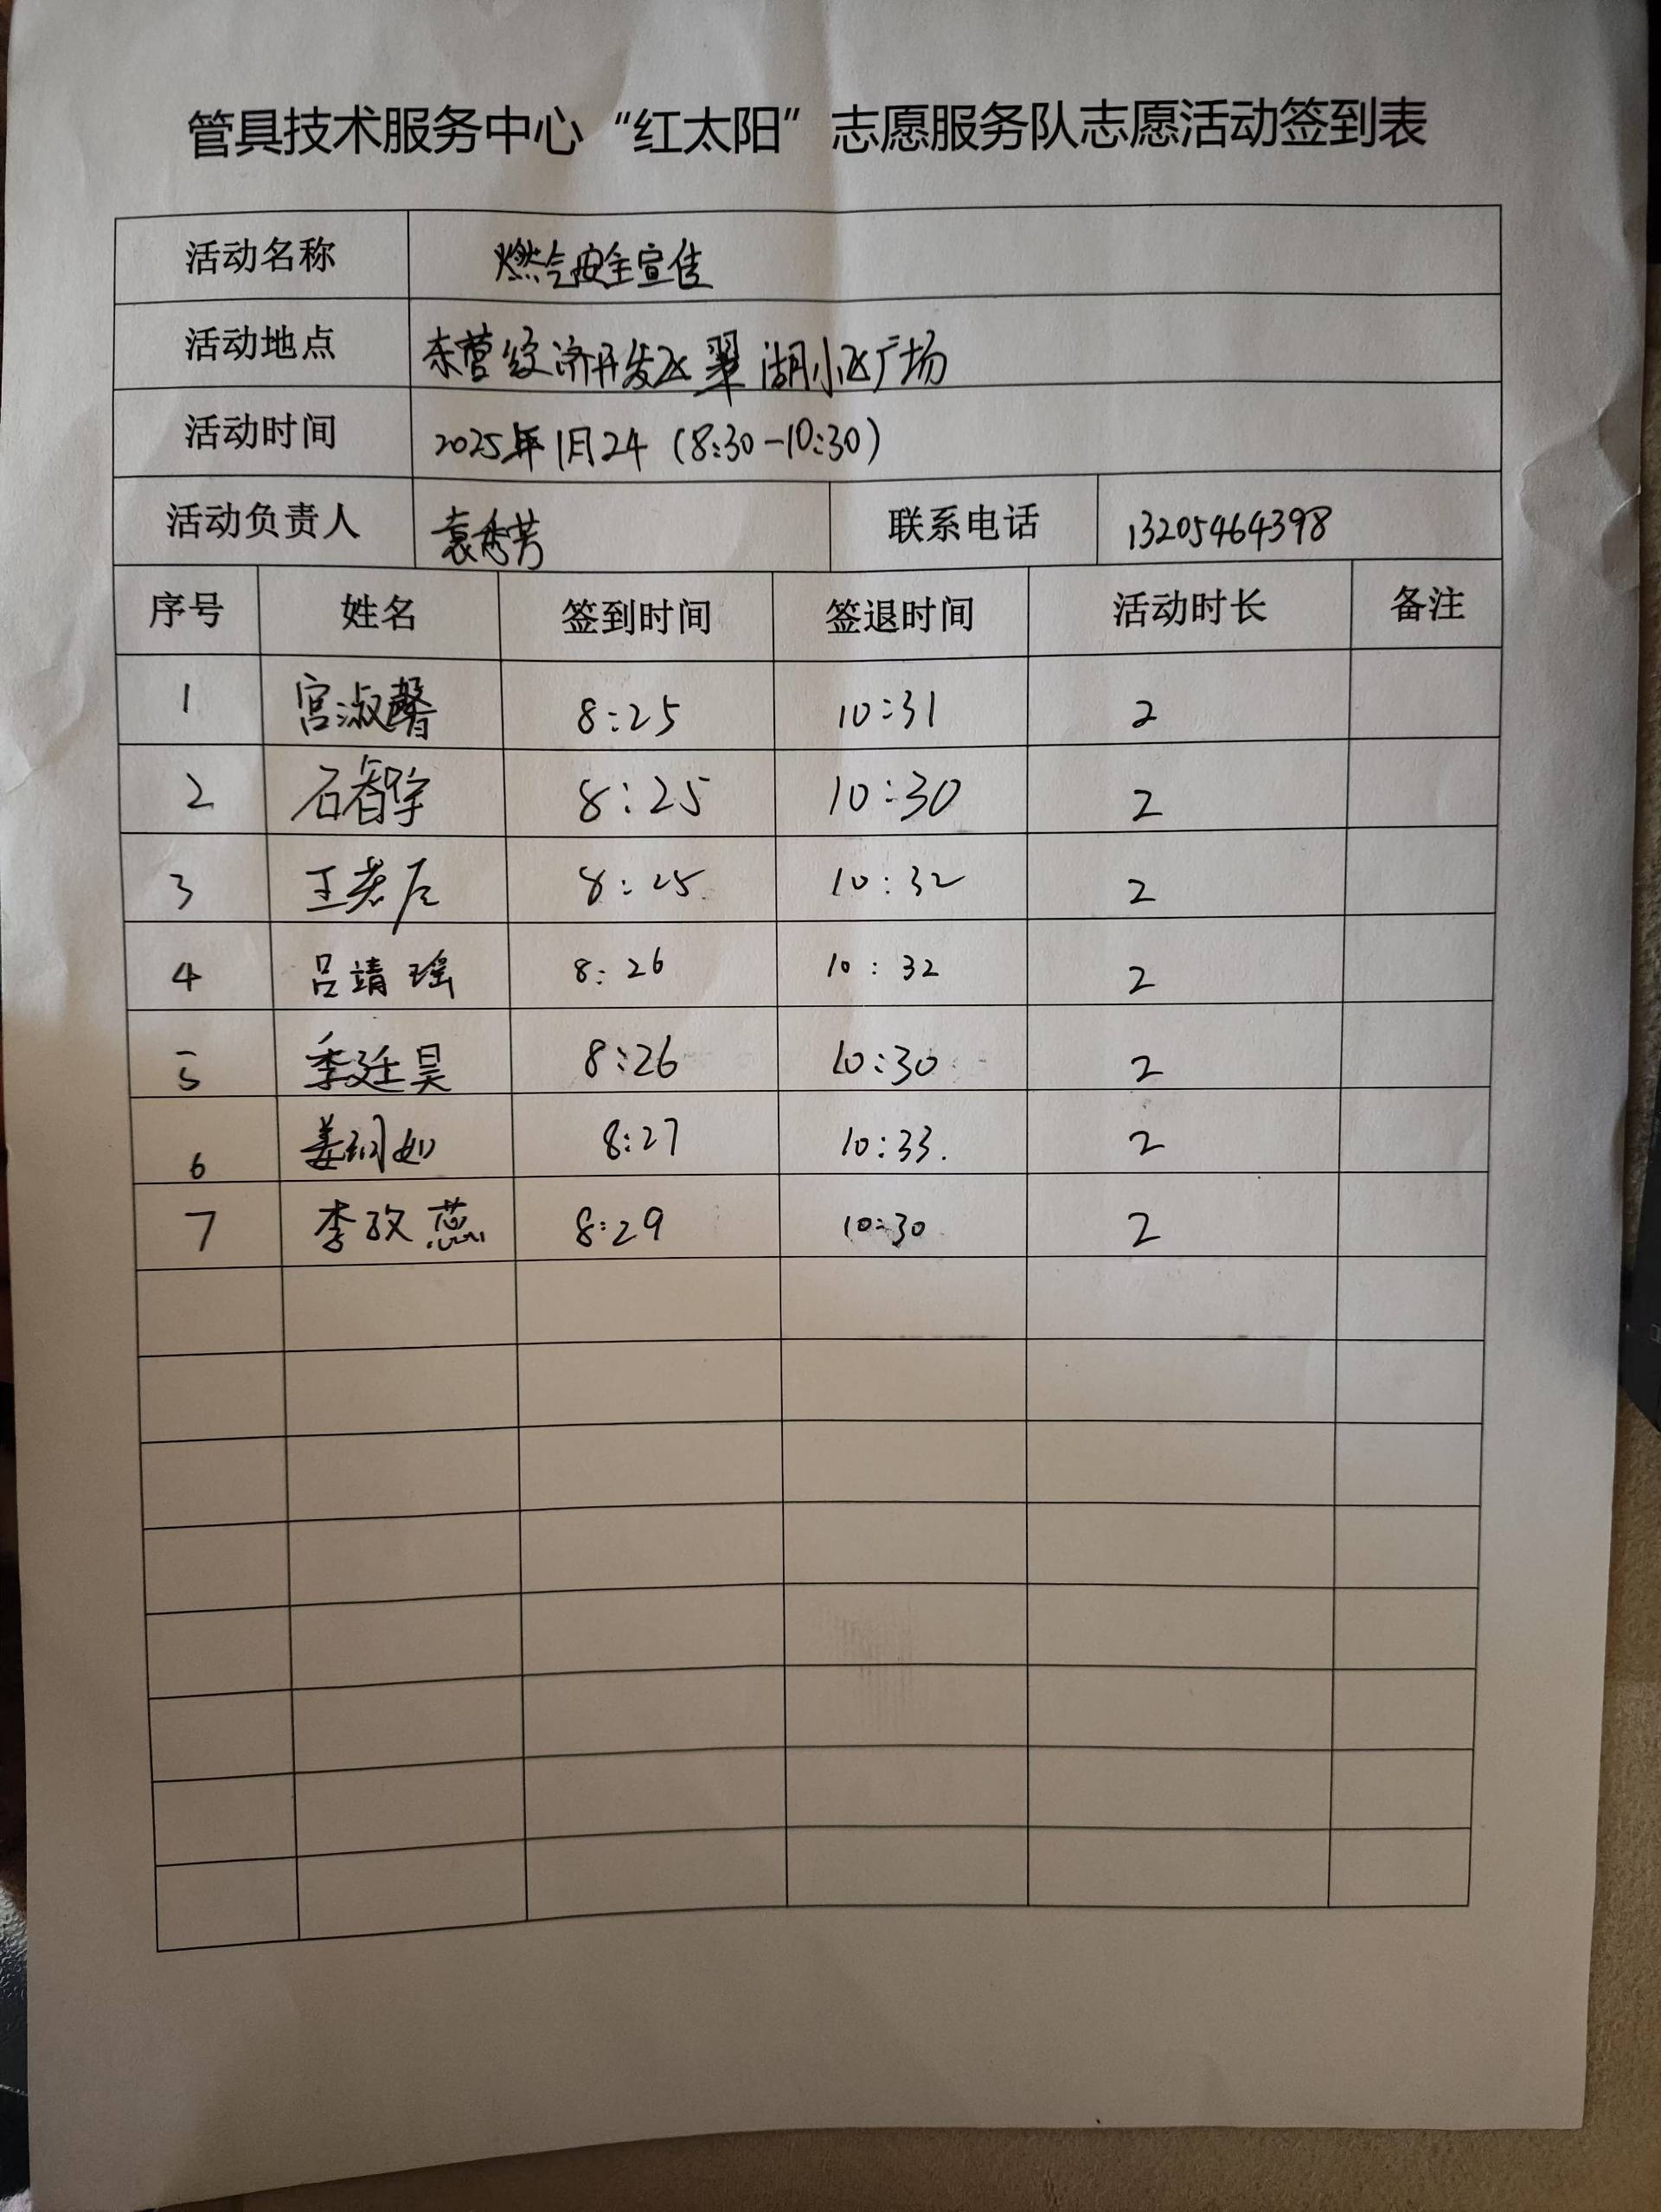 管具技术服务中心“红太阳”志愿服务队志愿活动签到表
活动名称 燃气安全宣传
活动地点 东营经济开发区翠湖小区广场
活动时间 2025年1月24 (8:30-10:30)
活动负责人 袁秀芳 联系电话 13205464398
序号 姓名 签到时间 签退时间 活动时长 备注
1 宫淑馨 8:25 10:31 2
2 石智宇 8:25 10:30 2
3 8:25 10:32 2
4 吕靖瑶 8:26 10:32 2
5 季廷昊 8:26 10:30 2
6 8:27 10:33. 2
7 李孜蕊 8:29 10:30 2